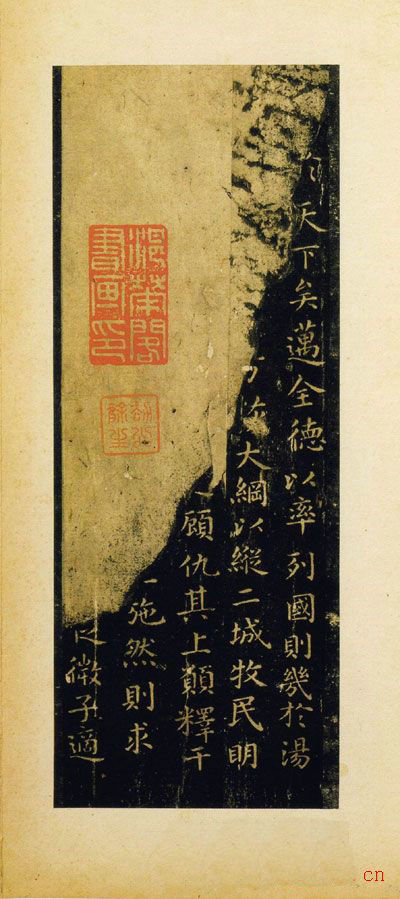 天下矣邁全德以率列國則幾於湯
大綱以縱二城牧民明
顧仇其上願釋干
施然則求
微子適
書畫印
劫火餘生
cn